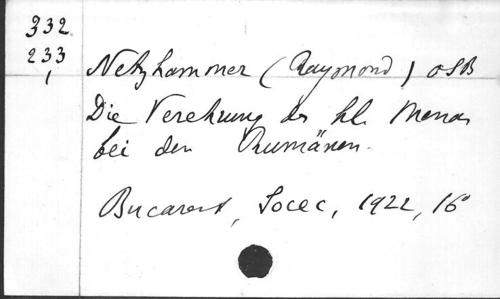 332
233
1
Netzhammer (Raymond) OSB
Die Verehrung des hl. Menas
bei den Rumänen.
Bucarest, Socec, 1922, 16°